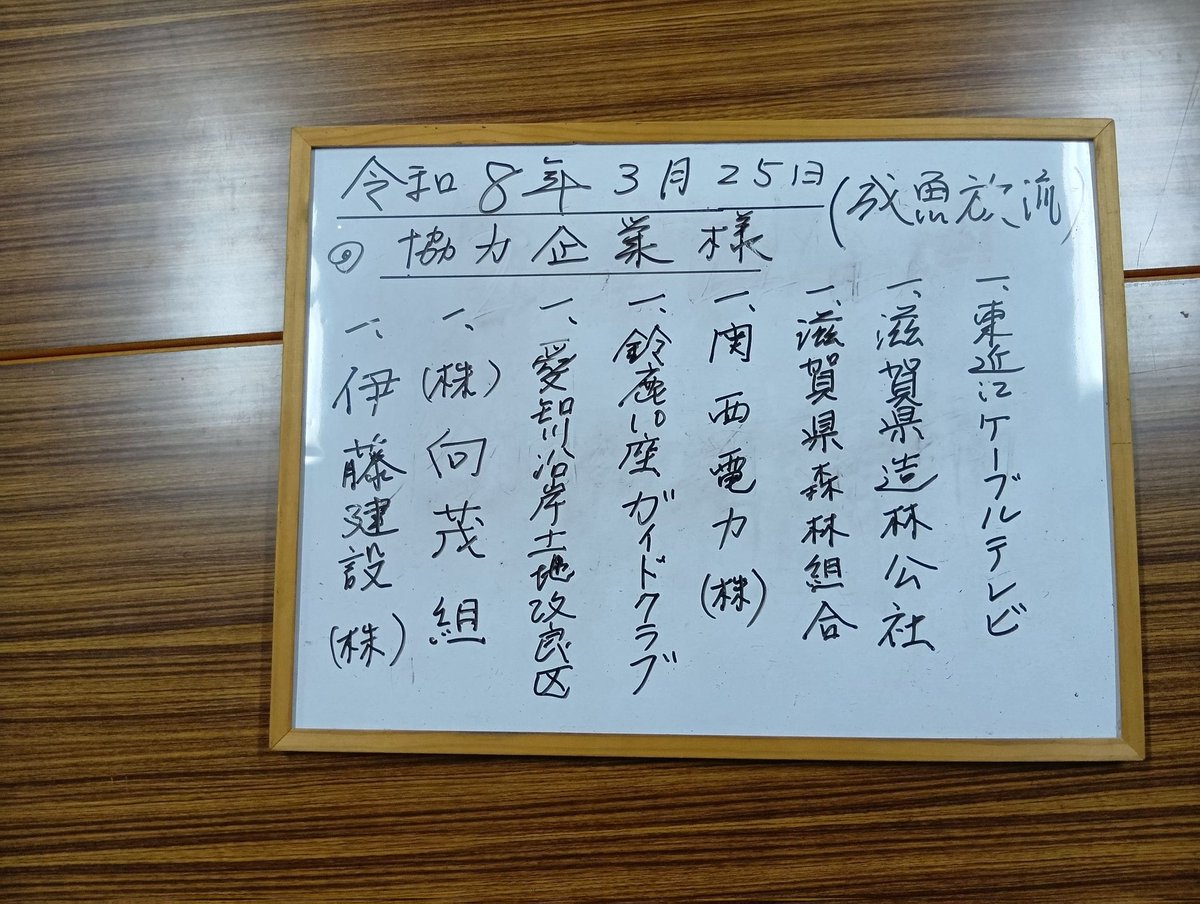 令和8年3月25日 (成魚放流)
◎ 協力企業様
一、東近江ケーブルテレビ
一、滋賀県造林公社
一、滋賀県森林組合
一、関西電力(株)
一、鈴鹿10座ガイドクラブ
一、愛知川沿岸土地改良区
一、(株)向茂組
一、伊藤建設(株)